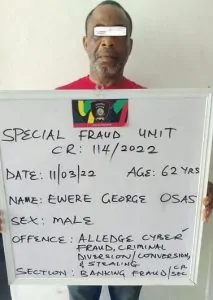 SPECIAL FRAUD UNIT
CR: 114/2022
DATE: 11/03/22 AGE: 62 YRS
NAME: EWERE GEORGE OSAS
SEX: MALE
OFFENCE: ALLEDGE CYBER
FRAUD, CRIMINAL
DIVERSION/CONVERSION,
& STEALING
SECTION: BANKING FRAUD (CR SEC